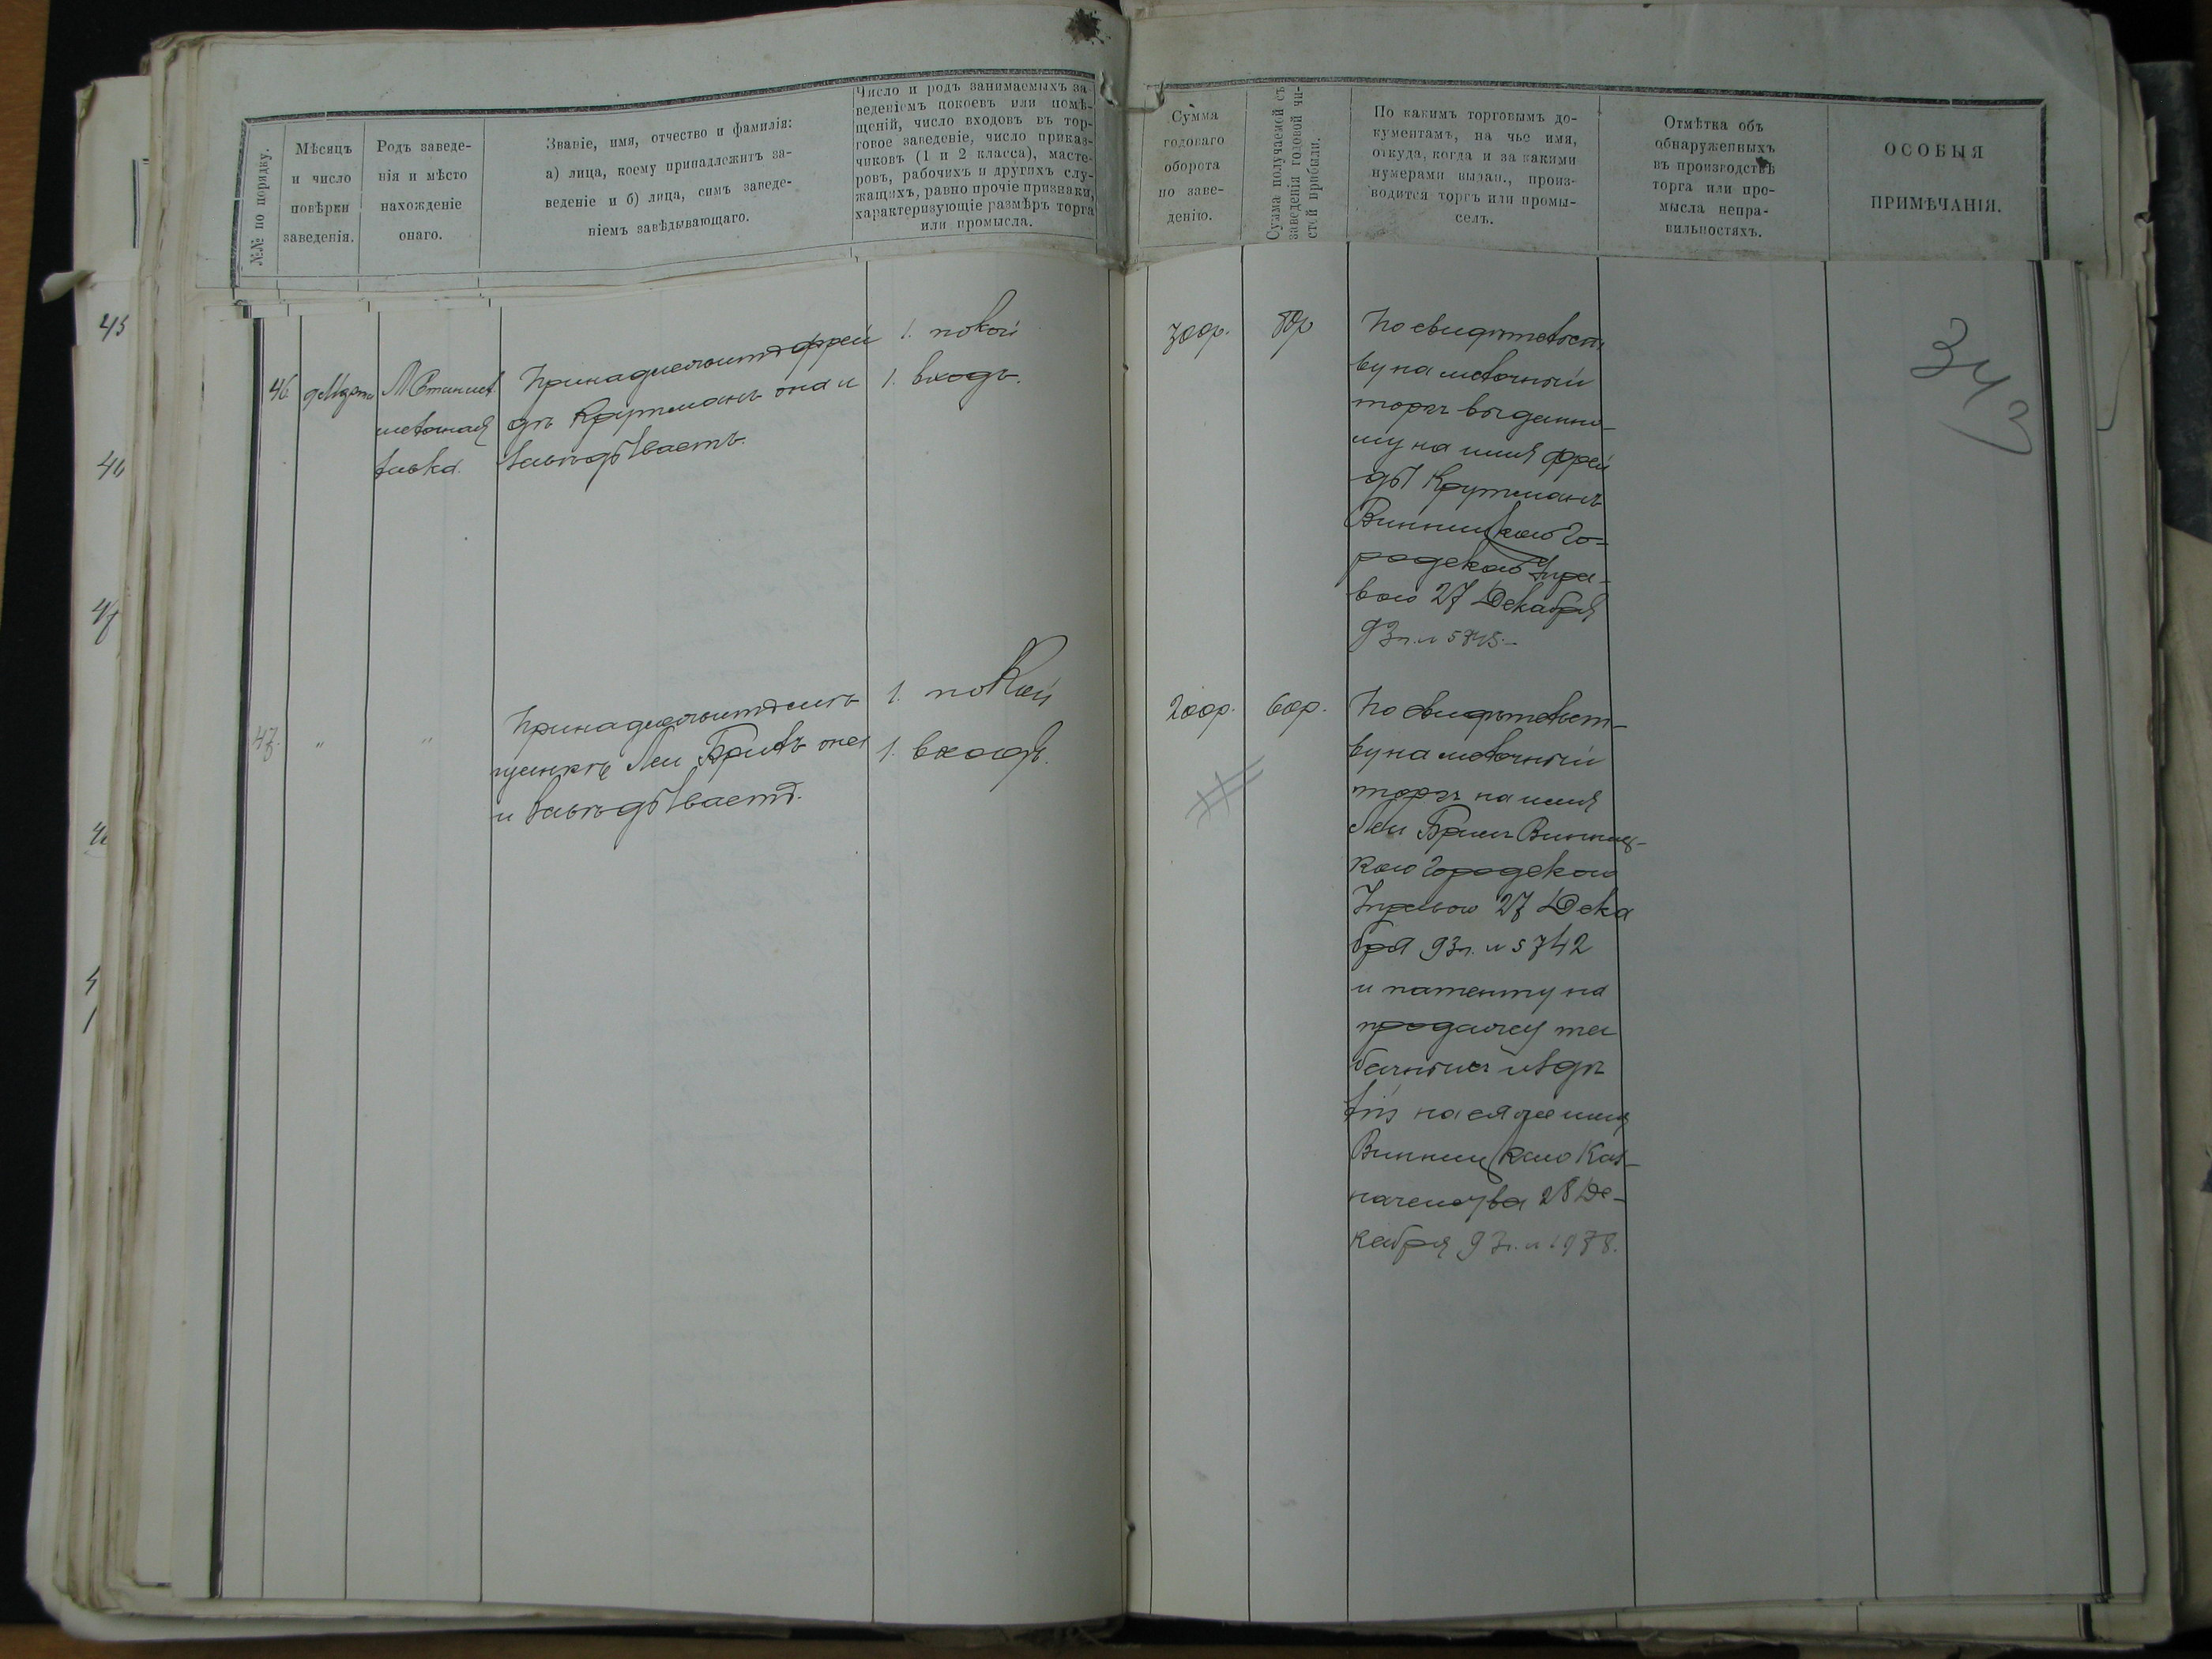 №№ по порядку.
Мѣсяцъ
и число
повѣрки
заведенія.
Родъ заведе-
нія и мѣсто
нахожденіе
онаго.
Званіе, имя, отчество и фамилія:
а) лица, коему принадлежитъ за-
веденіе и б) лица, симъ заведе-
ніемъ завѣдывающаго.
Число и родъ занимаемыхъ за-
веденіемъ покоевъ или помѣ-
щеній, число входовъ въ тор-
говое заведеніе, число приказ-
чиковъ (1 и 2 класса), масте-
ровъ, рабочихъ и другихъ слу-
жащихъ, равно прочіе признаки,
характеризующіе размѣръ торга
или промысла.
Сумма
годоваго
оборота
по заве-
денію.
Сумма получаемой съ
заведенія годовой чи-
стой прибыли.
По какимъ торговымъ до-
кументамъ, на чье имя,
откуда, когда и за какими
нумерами выдан., произ-
водится торгъ или промы-
селъ.
Отмѣтка объ
обнаруженныхъ
въ производствѣ
торга или про-
мысла непра-
вильностяхъ.
ОСОБЫЯ
ПРИМѢЧАНІЯ.
45
46
47
46
мелочная
лавка.
Принадлежитъ Фрей
дѣ Крутманъ она и
завѣдываетъ.
1. покой
1. входъ.
300р.
По свидѣтельст
ву на мелочный
торгъ выданно-
му на имя Фрей
ды Крутманъ
Винницкаго Го-
родскаго Упра-
вою 27 Декабря
93 г. №
343
47.
"
"
Принадлежитъ
Леи она
и завѣдываетъ.
1. покой
1. входъ.
200р.
60р.
По свидѣтельст-
ву на мелочный
торгъ на имя
Леи Винниц-
каго Городскою
Управою 27 Дека
бря 93 г. № 5742
и патенту на
продажу та
бачныхъ издѣ
лій на ея же имя
Винницкаго Каз-
начейства 28 Де-
кабря 93 г. № 1978.